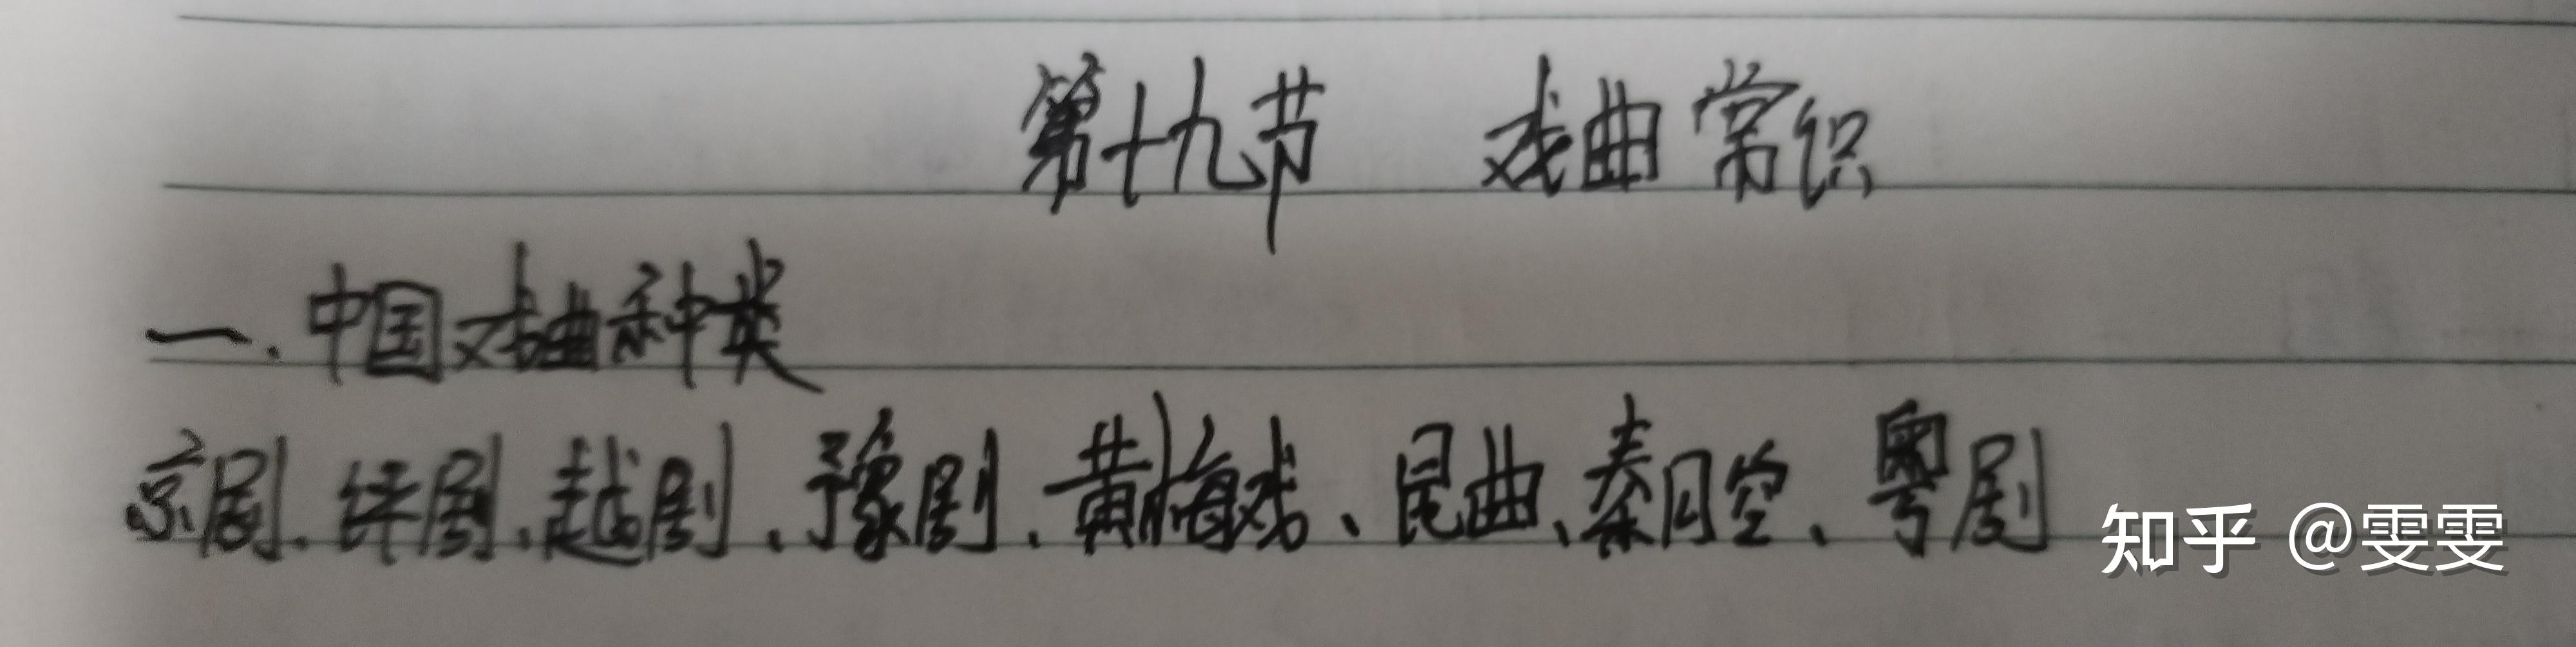 第十九节 戏曲常识
一.中国戏曲种类
京剧、评剧、越剧、豫剧、黄梅戏、昆曲、秦腔、粤剧
知乎 @雯雯